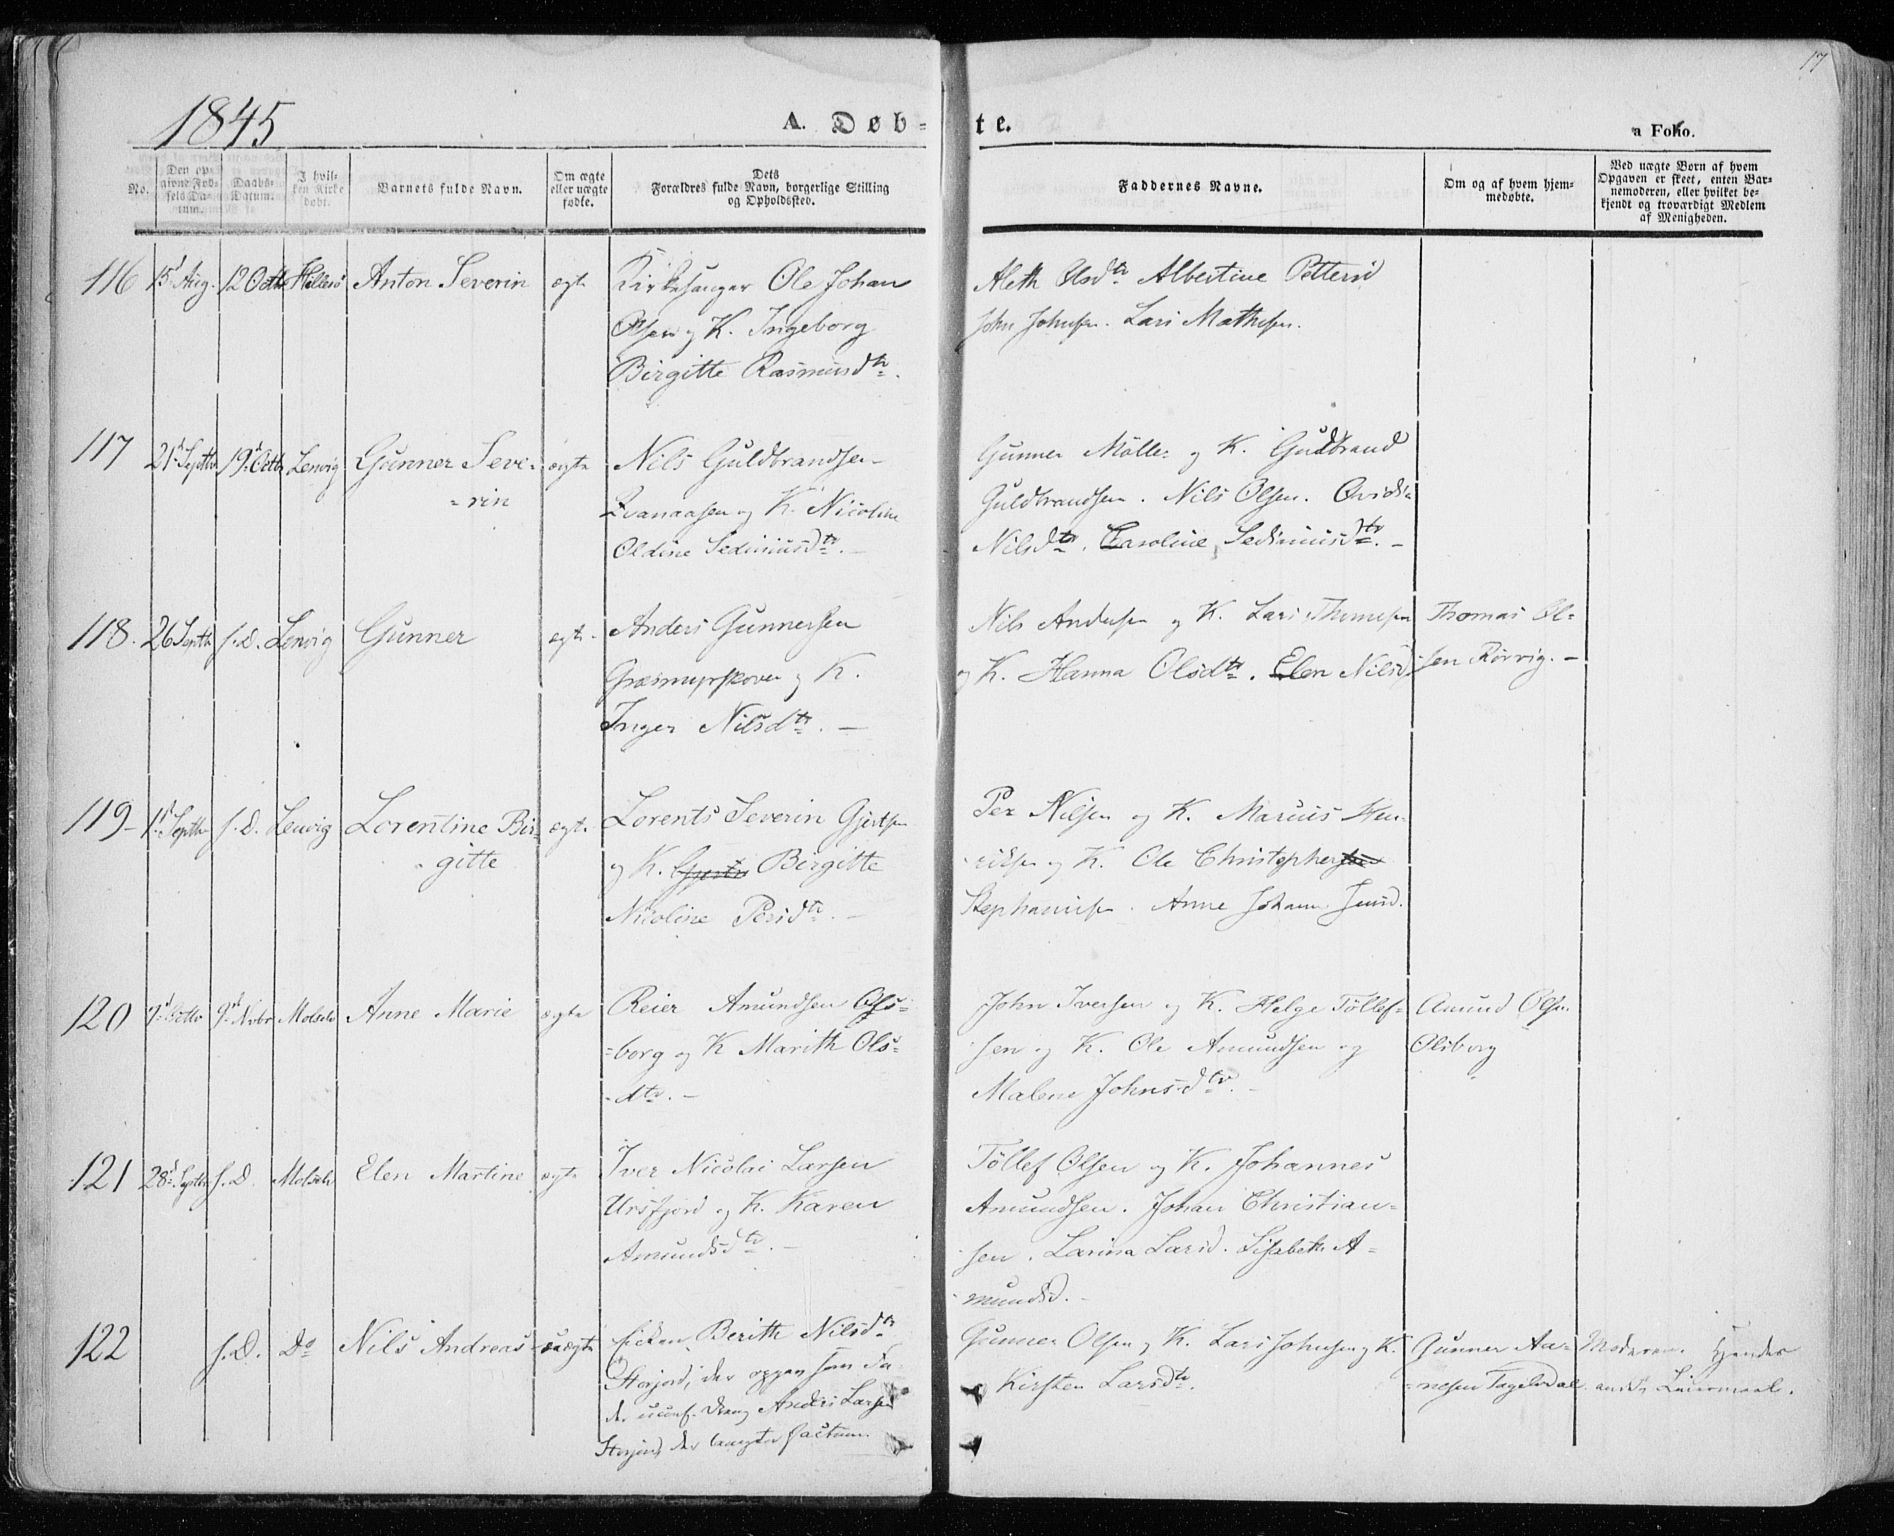 17
1845
A. Døbte.
a Folio.
No.
Den opgivne Fødsels Datum.
Daabs-Datum.
I hvilken Kirke døbt.
Barnets fulde Navn.
Om ægte eller uægte fødte.
Dets Forældres fulde Navn, borgerlige Stilling og Opholdssted.
Faddernes Navne.
Om og af hvem hjemmedøbte.
Ved uægte Børn af hvem Opgaven er skeet, enten Barnemoderen, eller hvilket bekjendt og troværdigt Medlem af Menigheden.
116 15 Aug. 12 Octb Hillesö Anton Severin ægte Kirkesanger Ole Johan
Olsen og K. Ingeborg
Birgitte Rasmusdtr.
Aleth Olsdtr Albertine Pettersd
John Johnsen. Lars Mathisen.
117 21 Septbr 19 Octb Lenvig Gunner Seve-
-rin
ægte Nils Guldbrandsen
og K. Nicoline
Oldine Sedeniusdtr. -
Gunner Møller og K. Gudbrand
Guldbrandsen. Nils Olsen.
Nilsdtr. Caroline Sedeniusdtr. -
118. 26 Septbr s. D. Lenvig Gunner ægte. Anders Gunnersen
Græsmyrskoven og K.
Inger Nilsdtr. -
Nils Andersen og K. Lars Thomesen
og K. Hanna Olsdtr. Elen Nilsd.
Thomas Ol-
sen Rörvig. -
119- 1 Septbr s. D. Lenvig Lorentine Bir-
-gitte
ægte Lorents Severin Gjertsen
og K. Birgitte
Nicoline Persdtr. -
Per Nilsen og K. Marius Hen-
-riksen og K. Ole Christopher
Stephanusen. Anne Johann. Jensd.
120 9 Octbr 9 Nvbr Molselv Anne Marie ægte Reier Amundsen Ols-
-borg og K Marith Ols-
-dtr. -
John Iversen og K. Helge Töllef-
sen og K. Ole Amundsen og
Malene Johnsdtr. -
Amund Olsen
Olsborg
121 28 Septbr s. D. Molselv Elen Martine ægte Iver Nicolai Larsen
Ursfjord og K. Karen
Amundsdtr. -
Töllef Olsen og K. Johannes
Amundsen. Johan Christian-
sen. Larina Larsd. Lisabeth A-
mundsd. -
122 s. D. Do Nils Andreas uægte Pigen Berith Nilsdtr
Storjord, der opgav som Fa-
der uconf. Dreng Anders Larsen
Storjord, der benegter factum.
Gunner Olsen og K. Lars Johnsen og K.
Kirsten Larsdtr.
Gunner Aa-
-nesen Fagerdal.
Moderen. Hendes
andet Leiermaal.